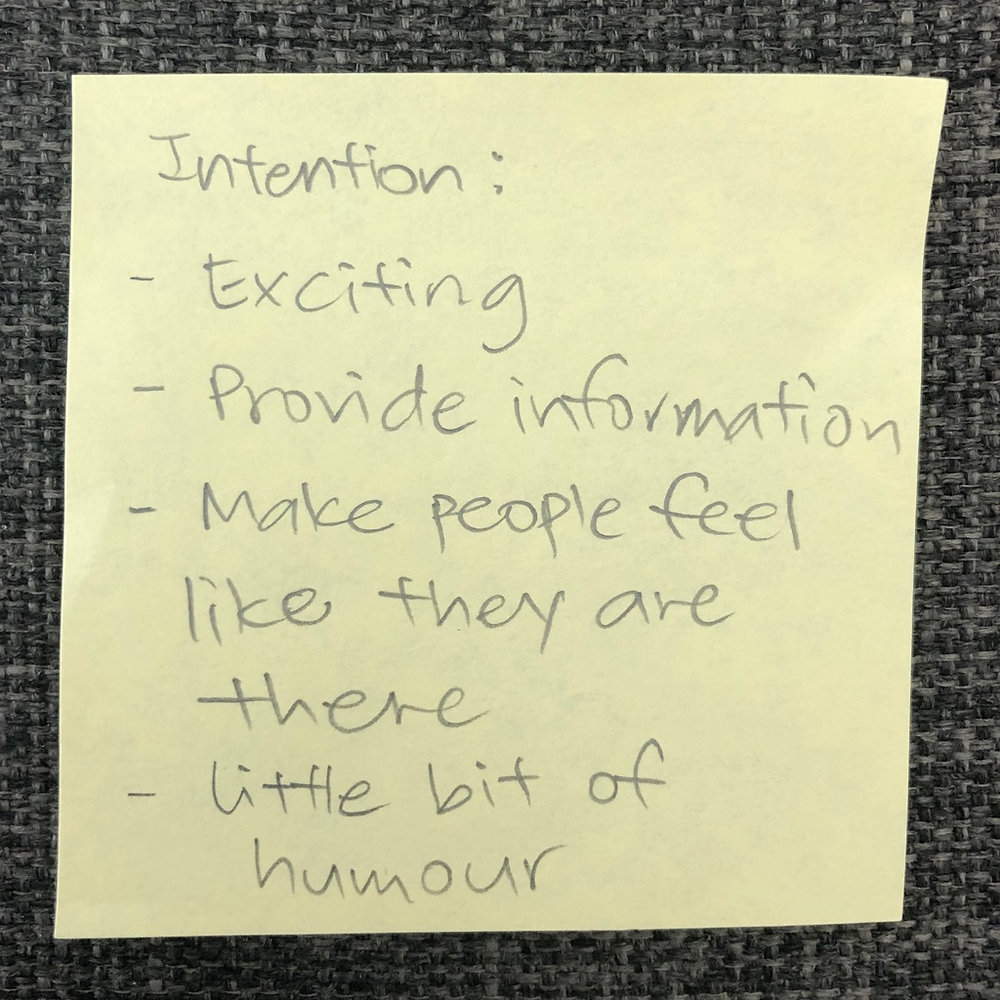 Intention:
- Exciting
- Provide information
- Make people feel
like they are
there
- little bit of
humour